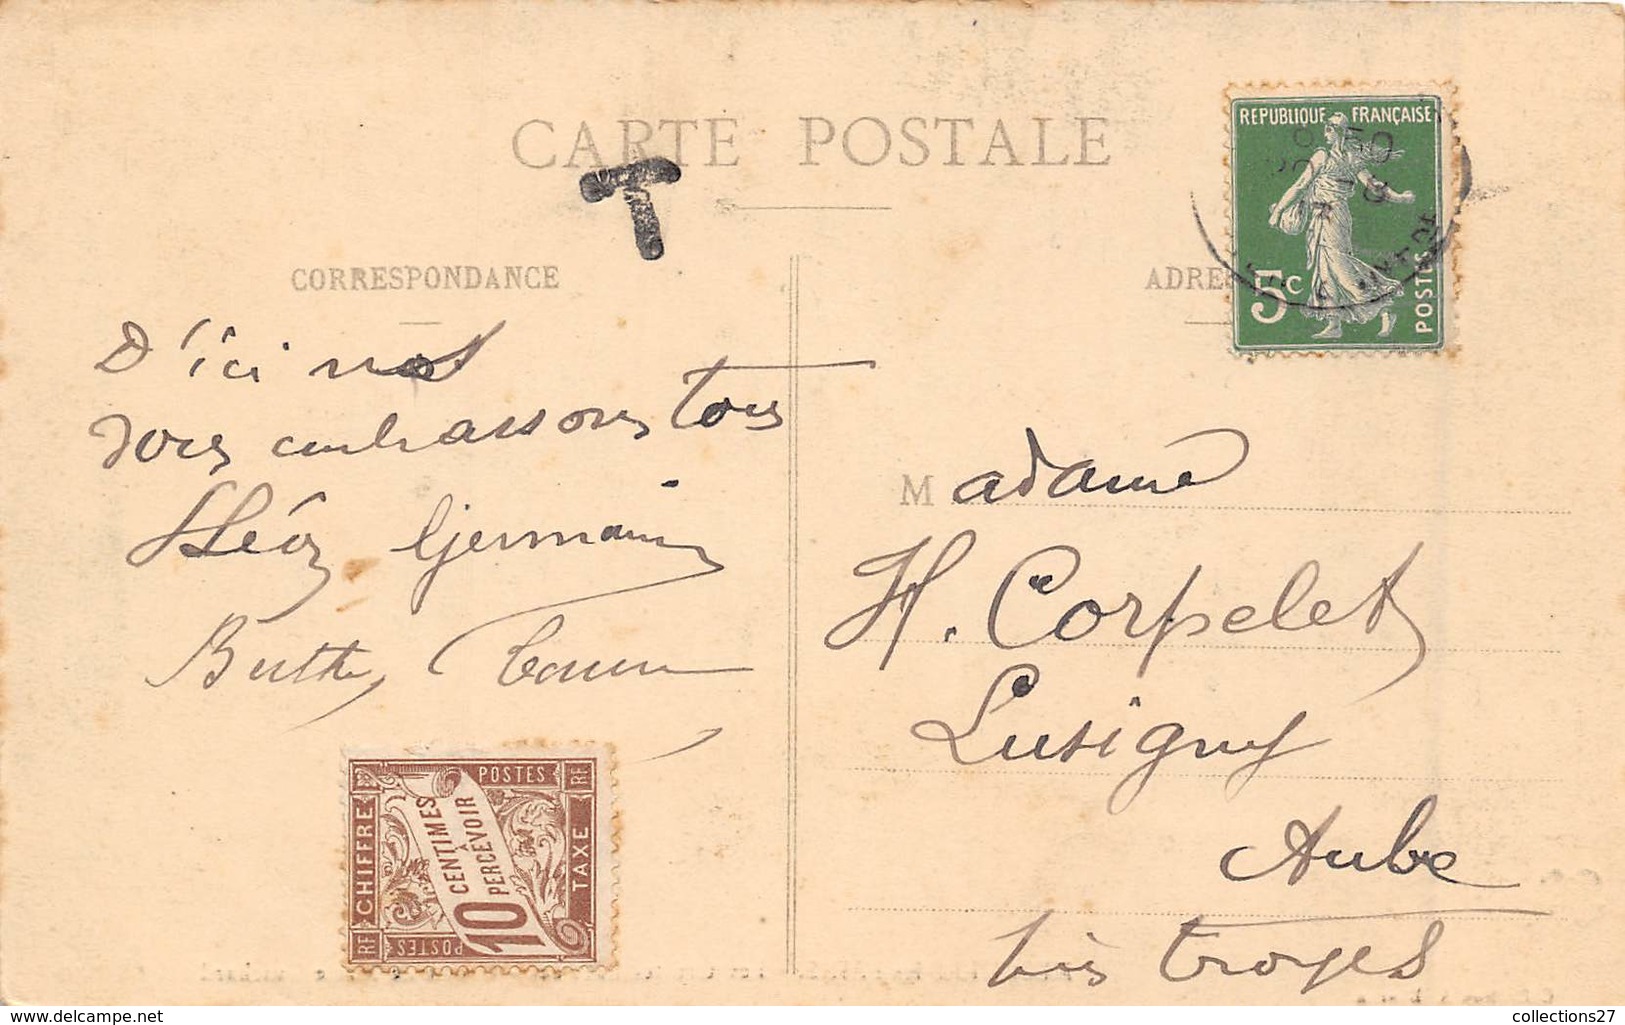 CARTE POSTALE
T
CORRESPONDANCE
D'ici nos
vous embrassons tous
Germain
Berthe
ADRES
REPUBLIQUE FRANÇAISE
5c
POSTES
Madame
H. Corpelet
Lusigny
Aube
près troyes
POSTES
RF
CHIFFRE
TAXE
10 CENTIMES
A
PERCEVOIR
RF
POSTES
www.delcampe.net
collections27